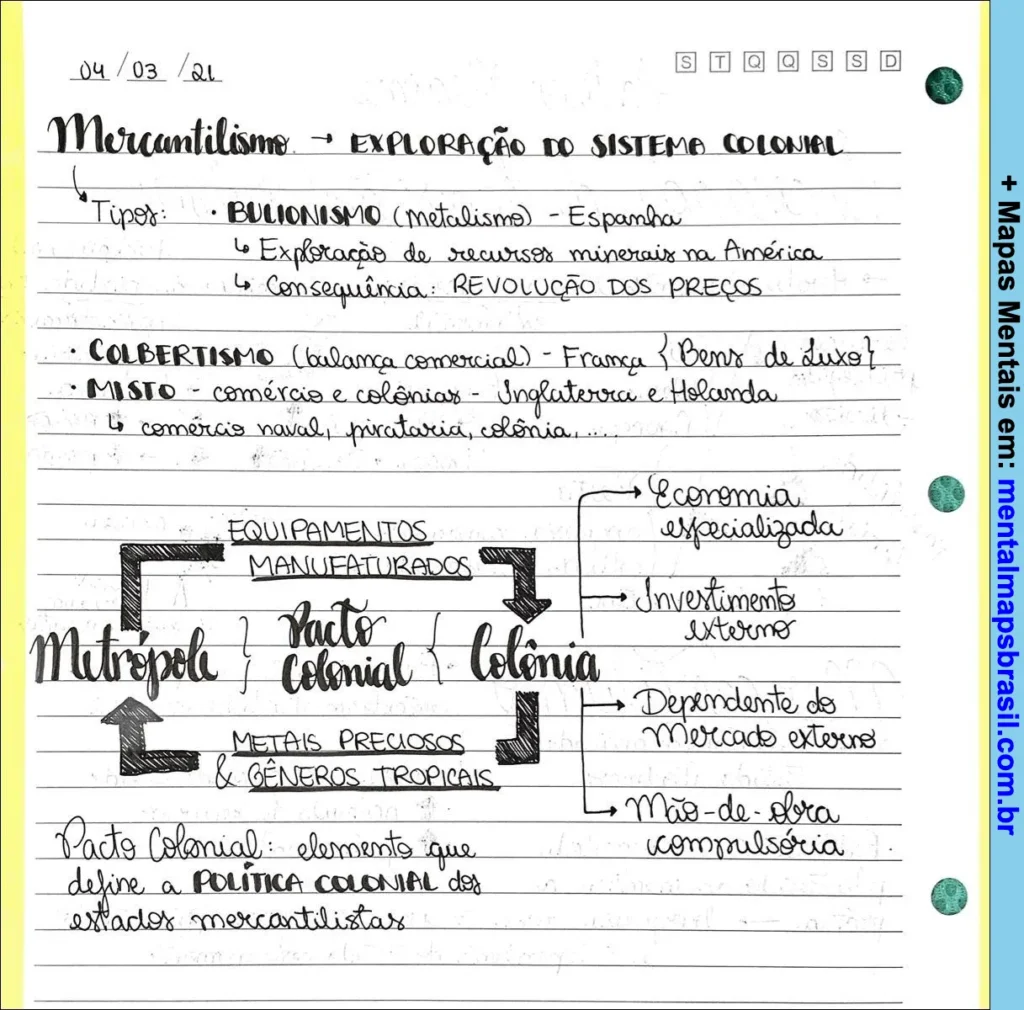 04/03/21
S T Q Q S S D
Mercantilismo → EXPLORAÇÃO DO SISTEMA COLONIAL
Tipos: · BULIONISMO (metalismo) - Espanha
↳ Exploração de recursos minerais na América
↳ Consequência: REVOLUÇÃO DOS PREÇOS
· COLBERTISMO (balança comercial) - França { Bens de Luxo }
· MISTO - comércio e colônias - Inglaterra e Holanda
↳ comércio naval, pirataria, colônia, ....
EQUIPAMENTOS
MANUFATURADOS
Metrópole } Pacto Colonial { Colônia
METAIS PRECIOSOS
& GÊNEROS TROPICAIS
→ Economia
especializada
→ Investimento
externo
→ Dependente do
Mercado externo
→ Mão-de-obra
compulsória
Pacto Colonial: elemento que
define a POLÍTICA COLONIAL dos
estados mercantilistas
+ Mapas Mentais em: mentalmapsbrasil.com.br